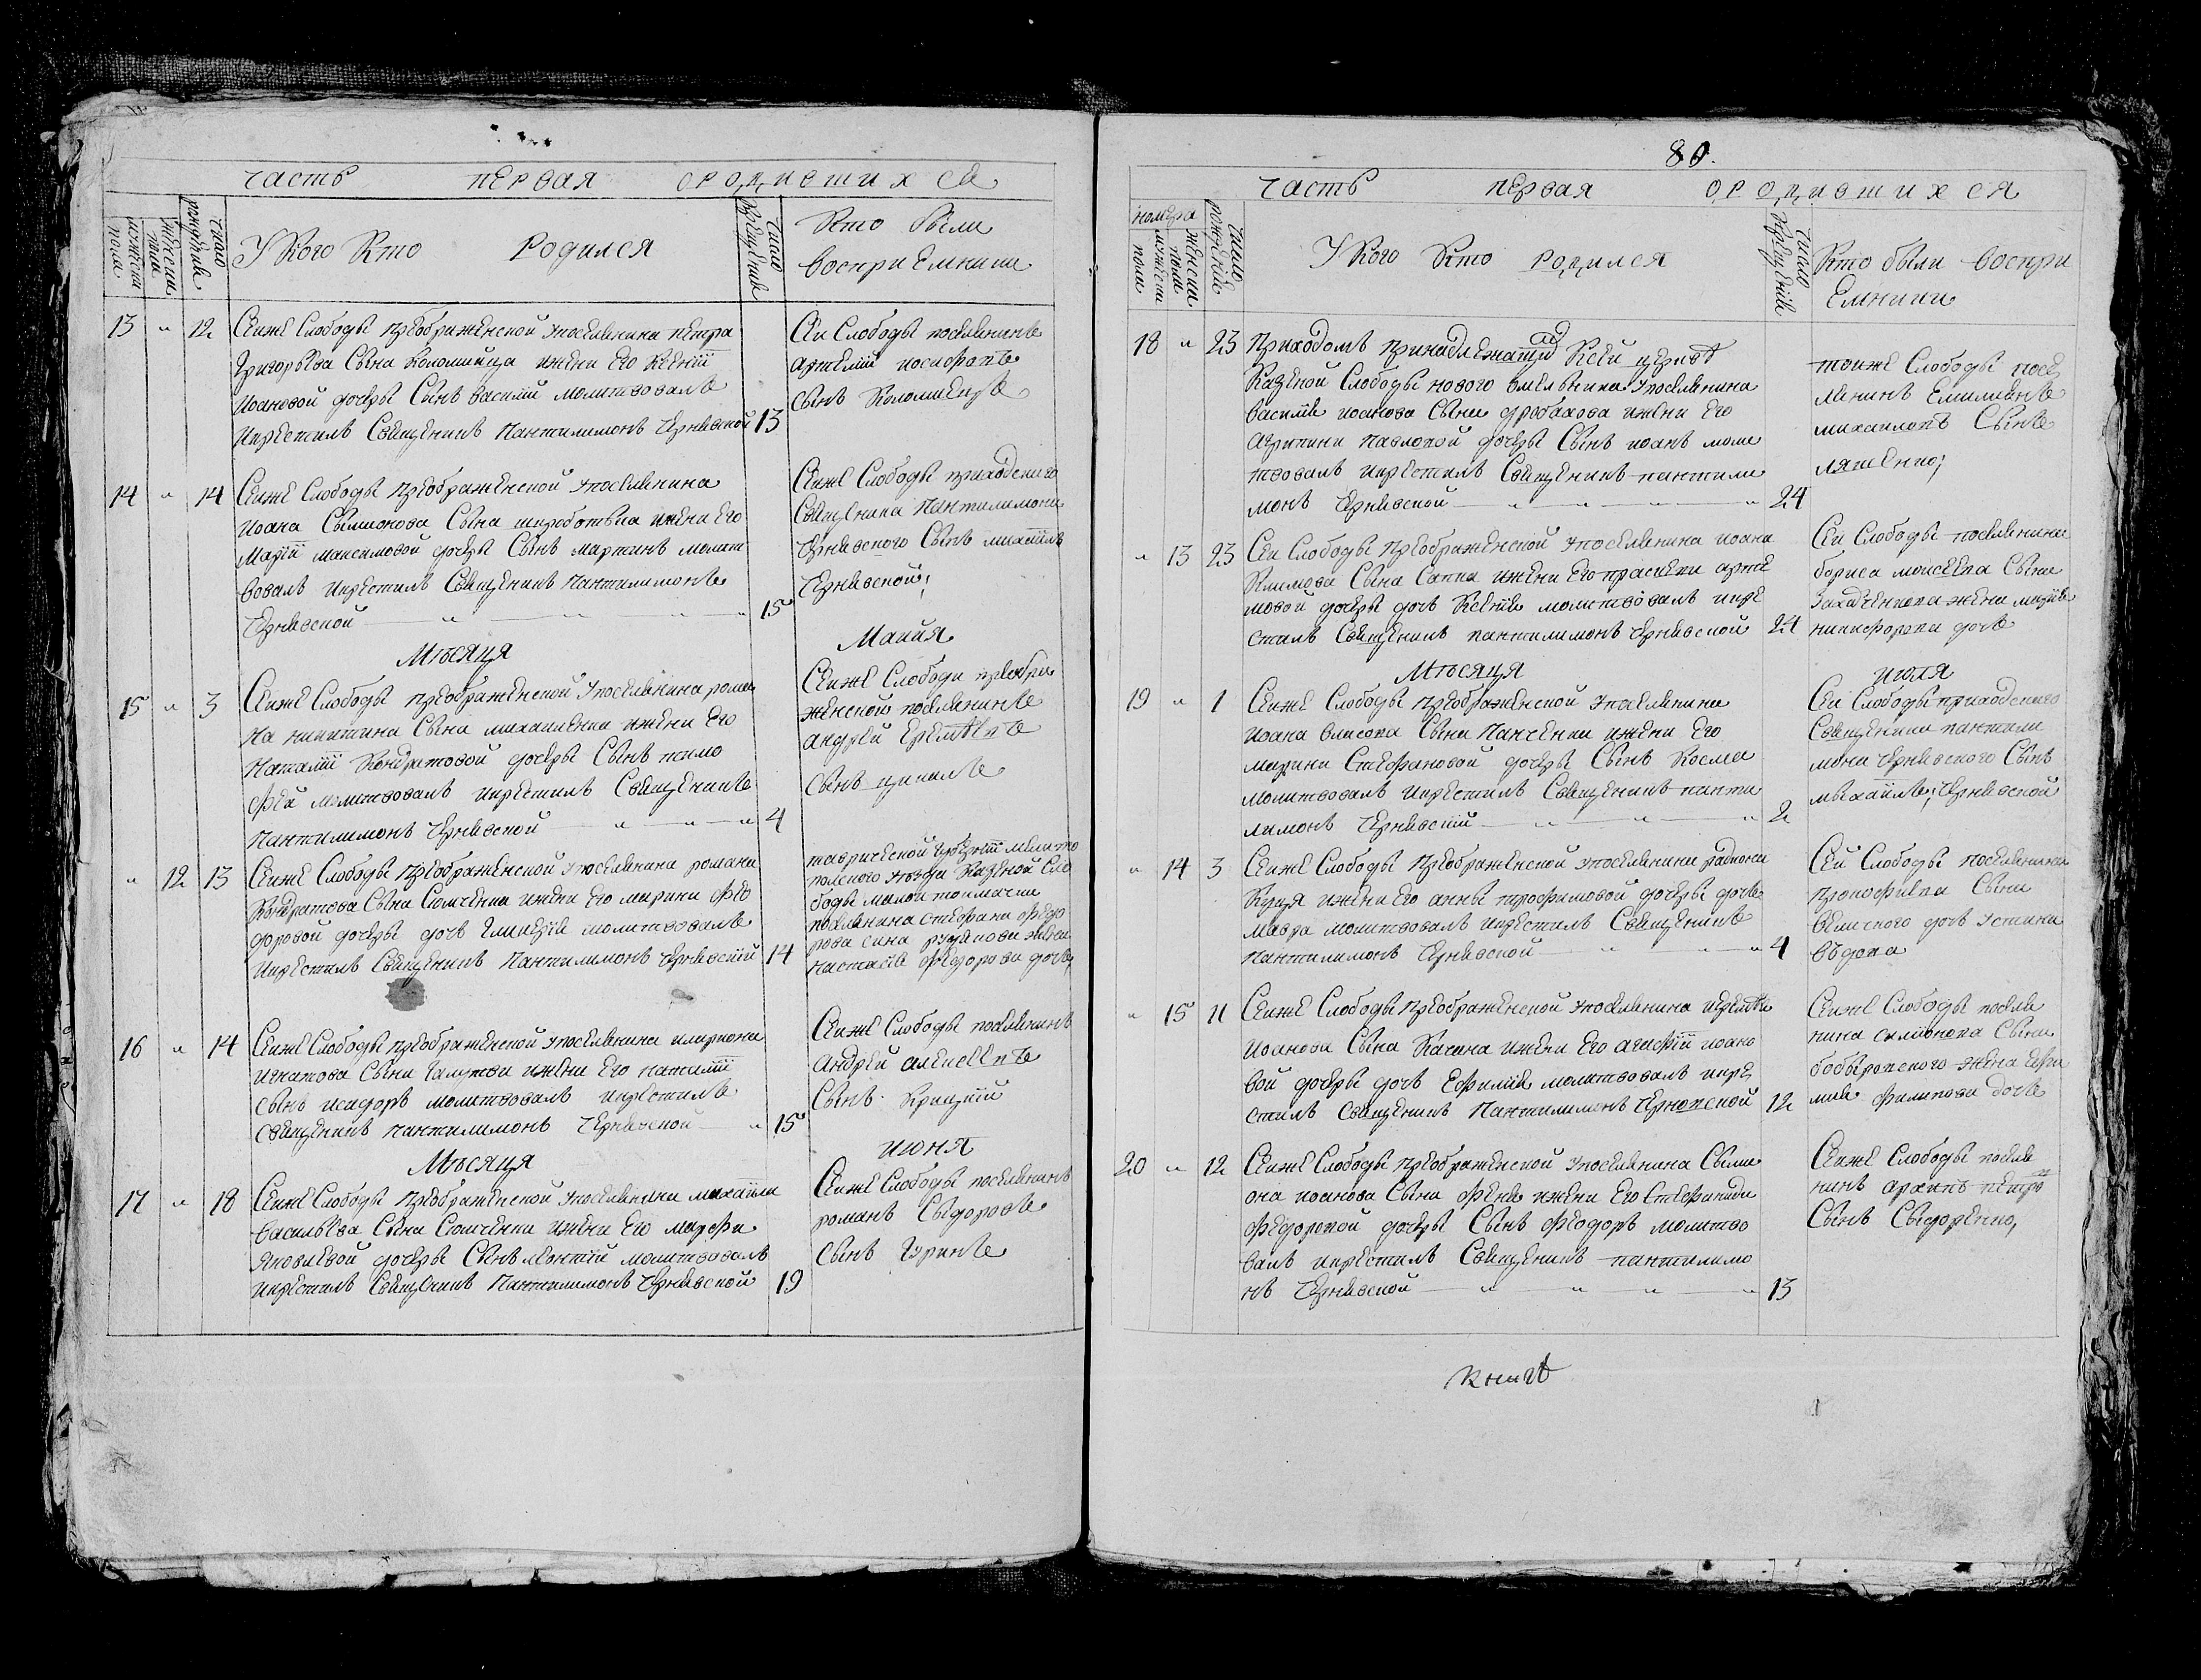 часть первая о родившихся
число рождения
мужеска пола
женска пола
У кого кто родился
число крещения
кто были
восприемники
13 " 12 Сеиже Слободы преображенской упоселянина петра
Григорьева Сына коломийца ижены Его Ксении
Иоановой дочеры Сынъ василий молитвовалъ
икрестилъ Священникъ Пантилимонъ Чернявской 13
Сеи Слободы поселянинъ
артемий иосифовъ
сынъ Коломиецъ
14 " 14 Сеиже Слободы преображенской упоселянина
Иоана Сымионова Сына ижены Его
Марии максимовой дочеры Сынъ мартинъ молит
вовалъ икрестилъ Священникъ Пантилимонъ
Чернявской " " " " 15
Сеиже Слободы приходского
Священика Пантилимона
Чернявского Сынъ михаилъ
Чернявской;
Мѣсяця Майя
15 " 3 Сеиже Слободы преображенской Упоселянина рома
на никитина Сына михаиленка ижены Его
Наталии Кондратовой дочеры Сынъ тимо
фей молитвовалъ икрестилъ Священникъ
Пантилимонъ Чернявской " " " 4
Сеиже Слободы преобра
женской поселянинъ
андрей Еремѣевъ
Сынъ
" 12 13 Сеиже Слободы Преображенской Упоселянина романа
Кондратова Сына Сюмченка ижены Его марины фео
доровой дочеры дочь Гликерия молитвовалъ
икрестилъ Священникъ Пантилимонъ Чернявский 14
таврической губернии мелито
польского уѣзда Казеной Сло
боды малой токмачки
поселянина стефана федо
рова сина жена
настасия федорова дочь,
16 " 14 Сеиже Слободы преображенской упоселянина илариона
игнатова Сына ижены Его наталии
сынъ исидоръ молитвовалъ икрестилъ
священникъ пантилимонъ Чернявской " 15
Сеиже Слободы поселянинъ
Андрей алексеевъ
Сынъ Крицкий
Мѣсяця июня
17 " 18 Сеиже Слободы Преображенской Упоселянина михаила
васильева Сына Сюмченка ижены Его марфы
яковлевой дочеры Сынъ леонтий молитвовалъ
икрестилъ Священникъ Пантилимонъ Чернявской 19
Сеиже Слободы поселянинъ
романъ Сыдоровъ
Сынъ Гринь
80.
часть первая о родившихся
номера
мужеска пола
женска пола
число рождения
У кого кто родился
число крещения
Кто были воспри
Емники
18 " 23 Приходомъ принадлежащи Ксей церкви
ой
Казеной Слободы нового Упоселянина
василия иоанова Сына дробахова ижены Его
агрипины павловой дочеры Сынъ иоанъ моли
твовалъ икрестилъ Священникъ пантили
монъ Чернявской " " " " 24
тоиже Слободы посе
лянинъ Емилиянъ
михаиловъ Сынъ
ляшенко;
" 13 23 Сеи Слободы Преображенской Упоселянина иоана
Климова Сына Сапка ижены Его параскеви арте
мовой дочеры дочь Ксения молитвовалъ икре
стилъ Священникъ пантилимонъ Чернявской 24
Сеи Слободы поселянина
бориса моисеева Сына
жена мария
никифорова дочь
Мѣсяця июля
19 " 1 Сеиже Слободы Преображенской Упоселянина
иоана власова Сына Панченка ижены Его
марины Стефановой дочеры Сынъ Косма
молитвовалъ икрестилъ Священникъ панти
лимонъ Чернявский " " " 2
Сеи Слободы приходского
Священика пантили
мона Чернявского Сынъ
михаилъ; Чернявской
" 14 3 Сеиже Слободы Преображенской упоселянина радиона
Куця ижены Его анны трофимовой дочеры дочь
Мавра молитвовалъ икрестилъ Священникъ
Пантилимонъ Чернявской " " " 4
Сей Слободы поселянина
прокофиева Сына
величкого дочь устина
вдова
" 15 11 Сеиже Слободы Преображенской упоселянина иеремѣя
Иоанова Сына Качана ижены Его агафии иоано
вой дочеры дочь Ефимия молитвовалъ икре
стилъ Священникъ Пантилимонъ Чернявской 12
Сеиже Слободы поселя
нина симионова Сына
бобыровского жена
филипова дочь
20 " 12 Сеиже Слободы Преображенской упоселянина Сыми
она иоанова Сына ижены Его Стефаниды
Федоровой дочеры Сынъ Феодоръ молитво
валъ икрестилъ Священникъ пантилимо
нъ Чернявской " " " " 13
Сеиже Слободы поселя
нинъ архипъ петро
Сынъ Сыдоренко,
книгѣ